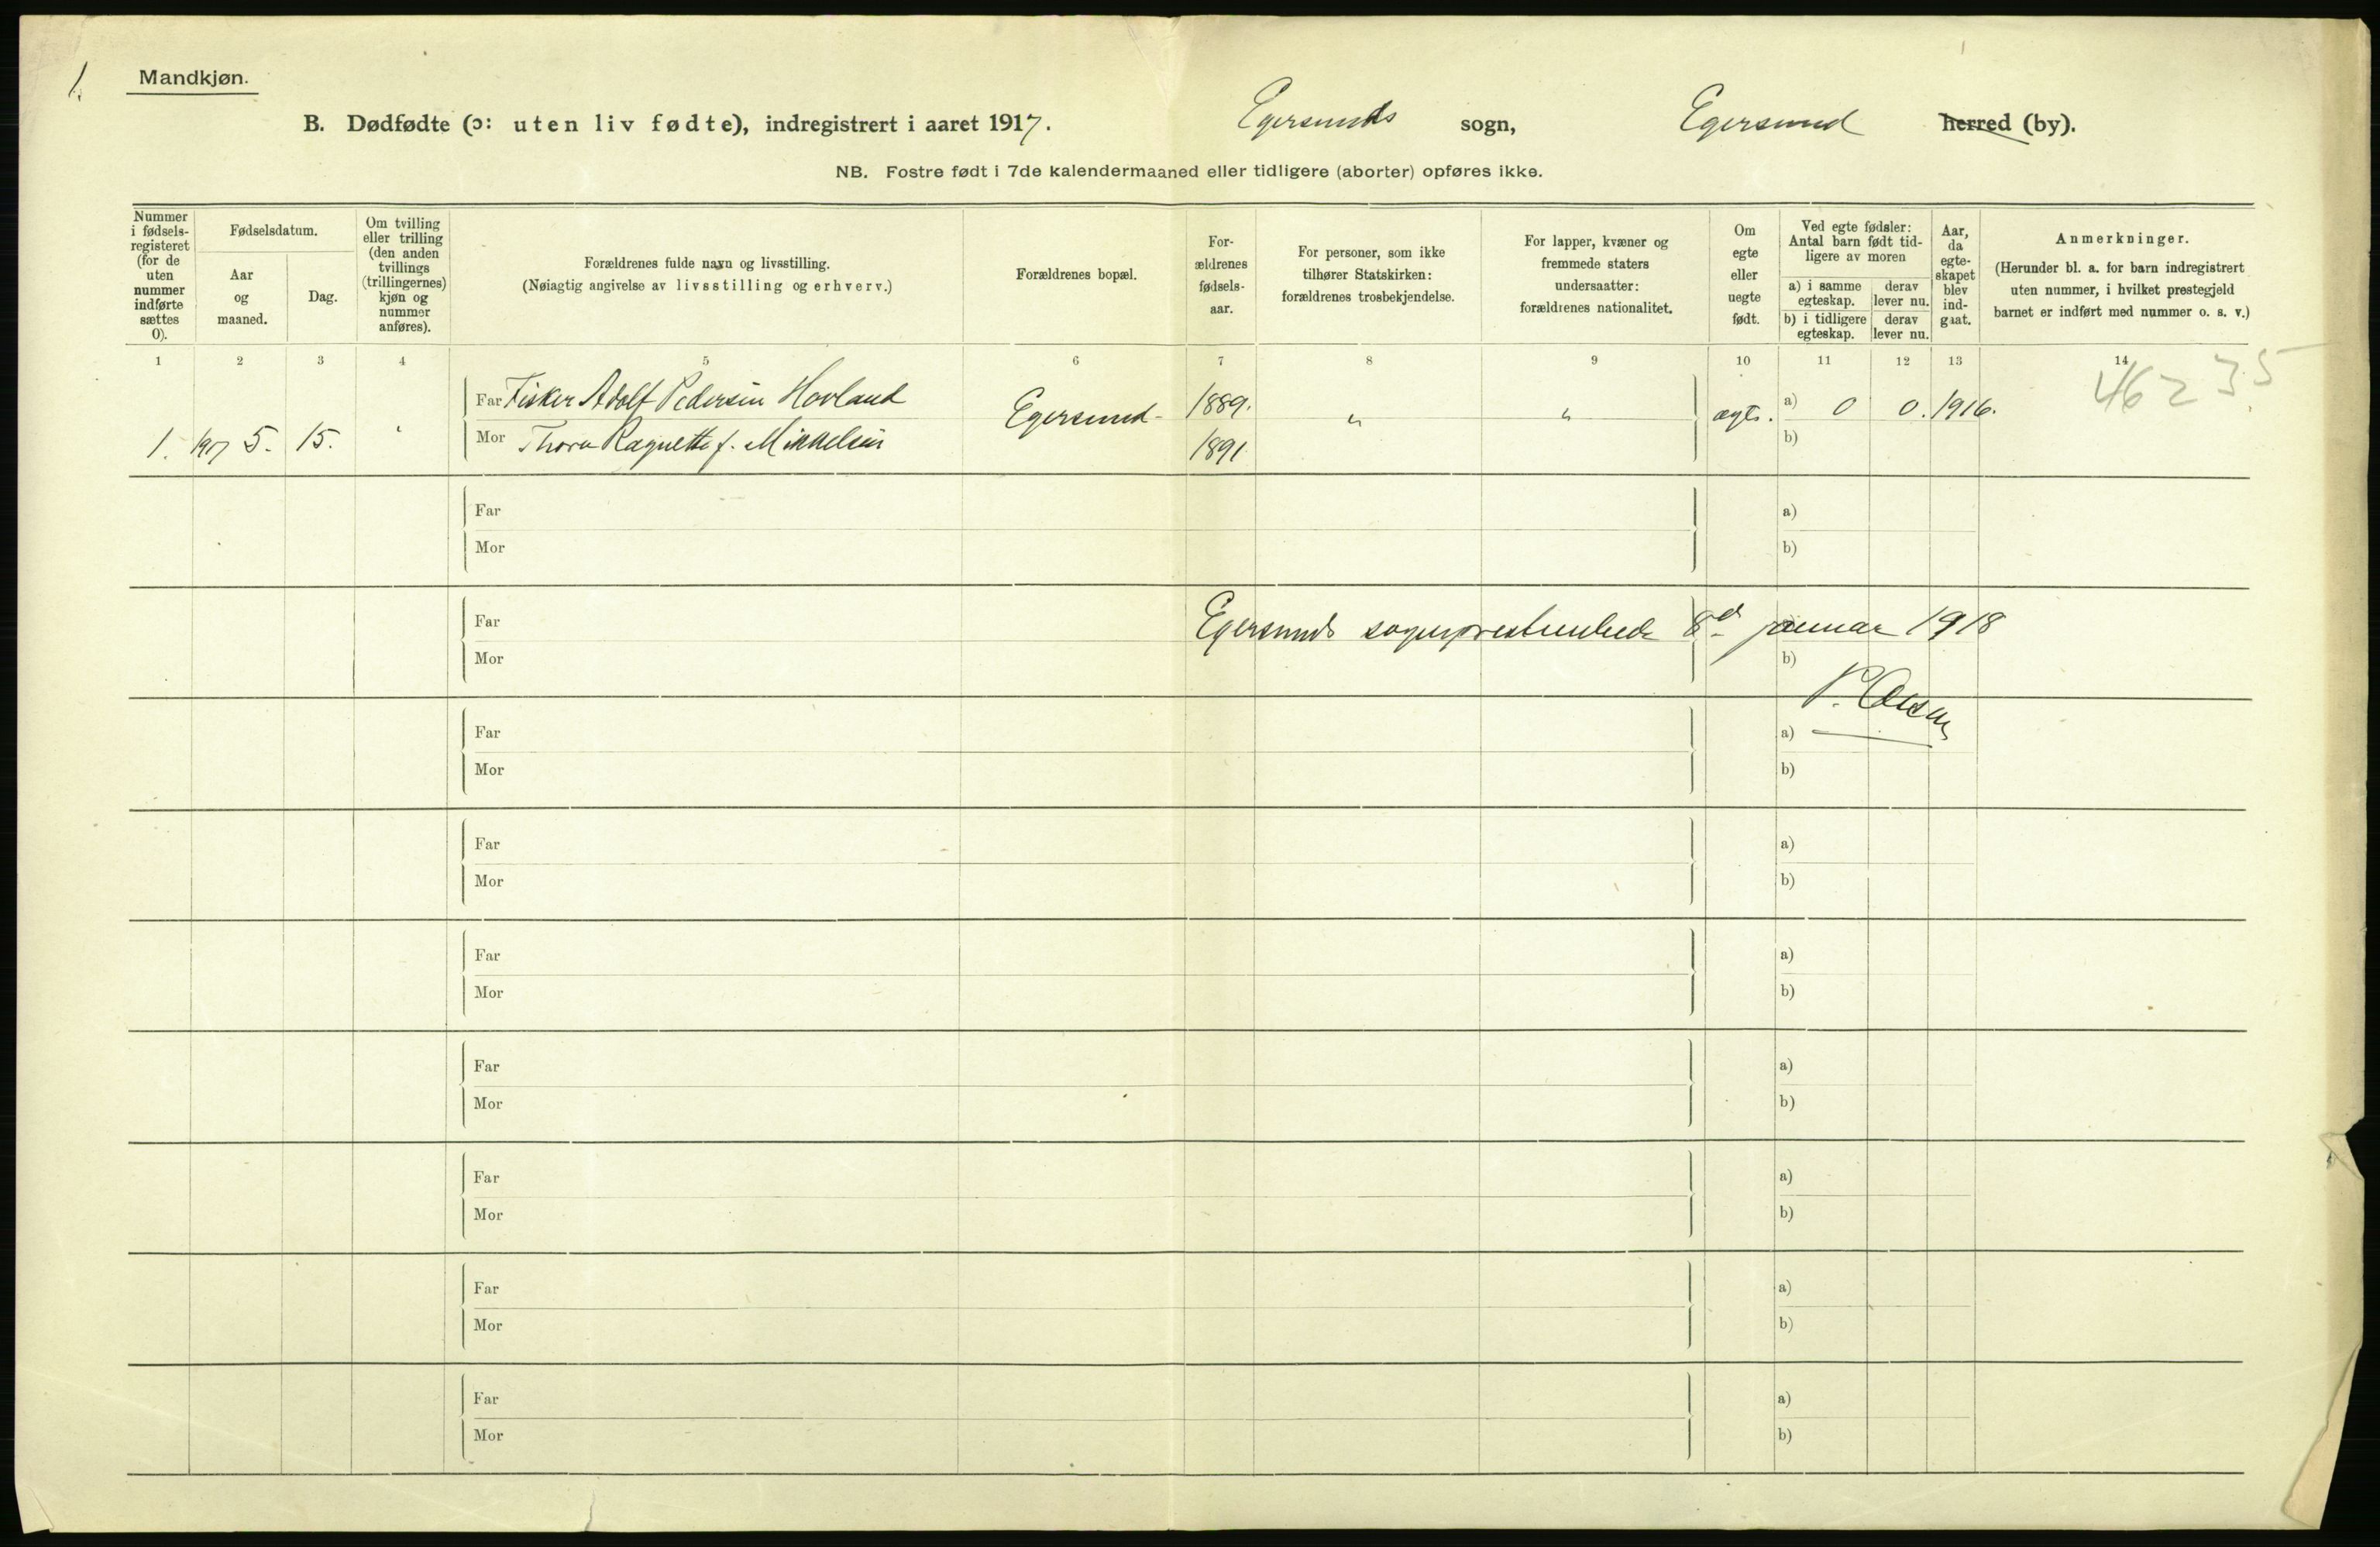 1.
Mandkjøn.
B. Dødfødte (ɔ: uten liv fødte), indregistrert i aaret 1917. Egersunds sogn, Egersund herred (by).
NB. Fostre født i 7de kalendermaaned eller tidligere (aborter) opføres ikke.
Nummer i fødsels-registeret (for de uten nummer indførte sættes 0).
Fødselsdatum.
Aar og maaned.
Dag.
Om tvilling eller trilling (den anden tvillings (trillingernes) kjøn og nummer anføres).
Forældrenes fulde navn og livsstilling.
(Nøiagtig angivelse av livsstilling og erhverv.)
Forældrenes bopæl.
For-ældrenes fødsels-aar.
For personer, som ikke tilhører Statskirken: forældrenes trosbekjendelse.
For lapper, kvæner og fremmede staters undersaatter: forældrenes nationalitet.
Om egte eller uegte født.
Ved egte fødsler: Antal barn født tid-ligere av moren
a) i samme egteskap. derav lever nu.
b) i tidligere egteskap. derav lever nu.
Aar, da egte-skapet blev ind-gaat.
Anmerkninger.
(Herunder bl. a. for barn indregistrert uten nummer, i hvilket prestegjeld barnet er indført med nummer o. s. v.)
1 2 3 4 5 6 7 8 9 10 11 12 13 14
46235
Far Fisker Adolf Pedersen Hovland Egersund 1889. " " ægte. a) 0 0. 1916.
1. 1917 5. 15. " Mor Thora Ragnette f. Mikkelsen 1891 b)
Far a)
Mor b)
Far Egersunds sogneprestembede 8d januar 1918
Mor b)
P.
Far a)
Mor b)
Far a)
Mor b)
Far a)
Mor b)
Far a)
Mor b)
Far a)
Mor b)
Far a)
Mor b)
Far a)
Mor b)